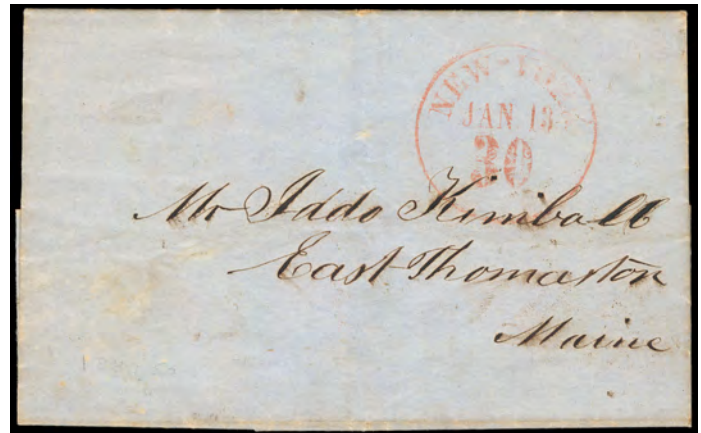 NEW-YORK
JAN 18
30
Mr Iddo Kimball
East Thomaston
Maine